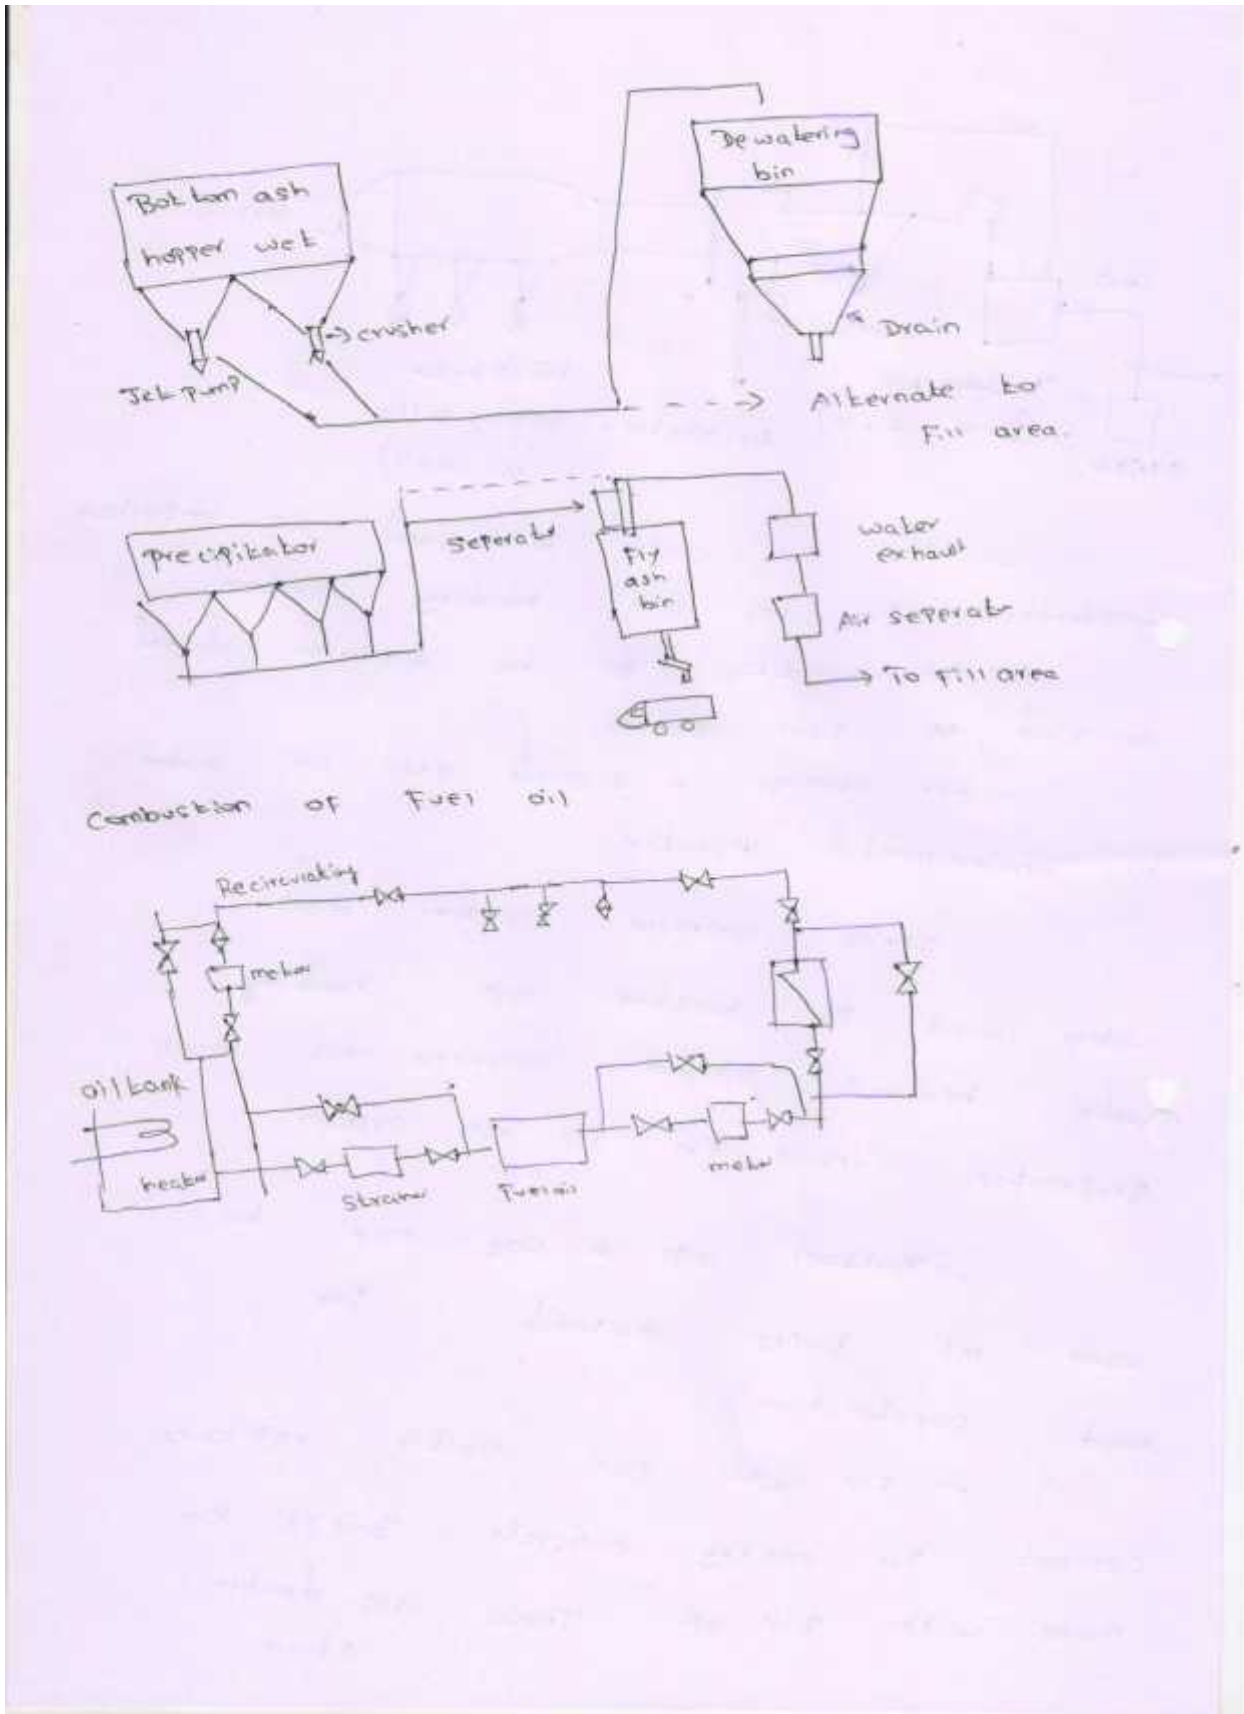 Dewatering
bin
Bottom ash
hopper wet
→ crusher
Drain
Jet pump
Alternate to
Fill area.
Precipitator
Seperator
Fly
ash
bin
water
exhaust
Air seperator
→ To Fill area
Combustion of Fuel oil
Recirculating
meter
oil tank
heater
Strainer
Fuel oil
meter